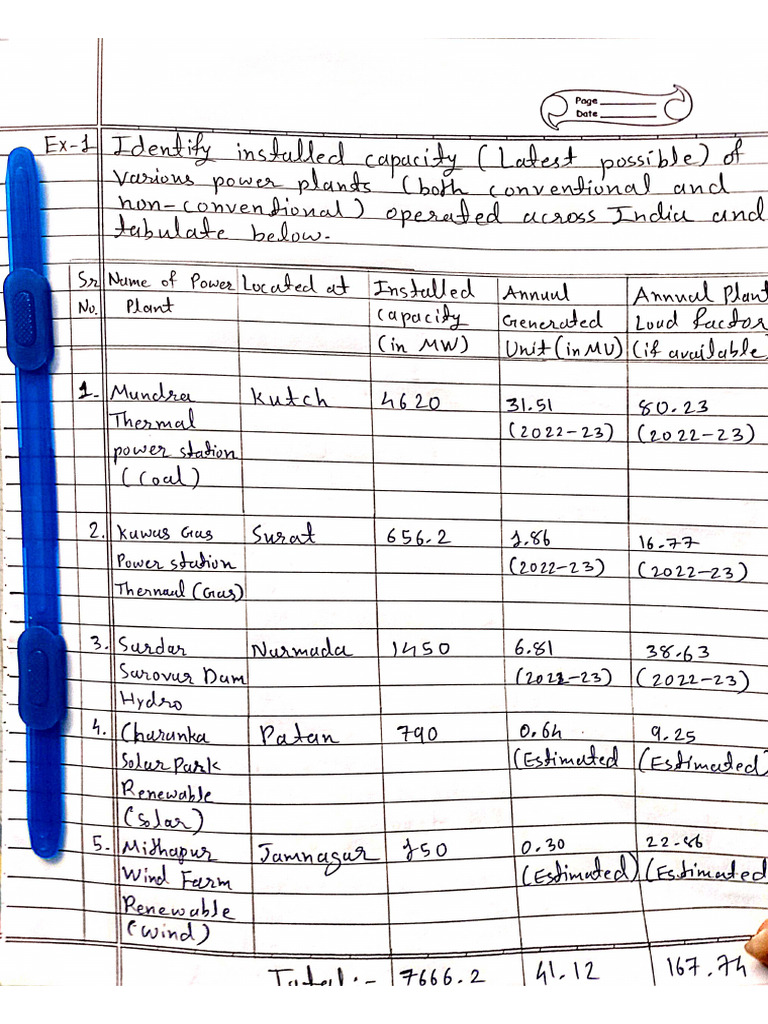 Page
Date
Ex-1 Identify installed capacity (Latest possible) of
various power plants (both conventional and
non-conventional) operated across India and
tabulate below.
Sr Name of Power Located at Installed Annual Annual Plant
No. Plant capacity Generated Load factor
(in MW) Unit (in MU) (if available
1. Mundra Kutch 4620 31.51 80.23
Thermal (2022-23) (2022-23)
power station
(Coal)
2. Kawas Gas Surat 656.2 1.86 16.77
Power station (2022-23) (2022-23)
Thermaul (Gas)
3. Sardar Narmada 1450 6.81 38.63
Sarovar Dam (2022-23) (2022-23)
Hydro
4. Charanka Patan 790 0.64 9.25
Solar Park (Estimated (Estimated)
Renewable
(Solar)
5. Mithapur Jamnagar 150 0.30 22.86
Wind Farm (Estimated) (Estimated
Renewable
(Wind)
Total:- 7666.2 41.12 167.74